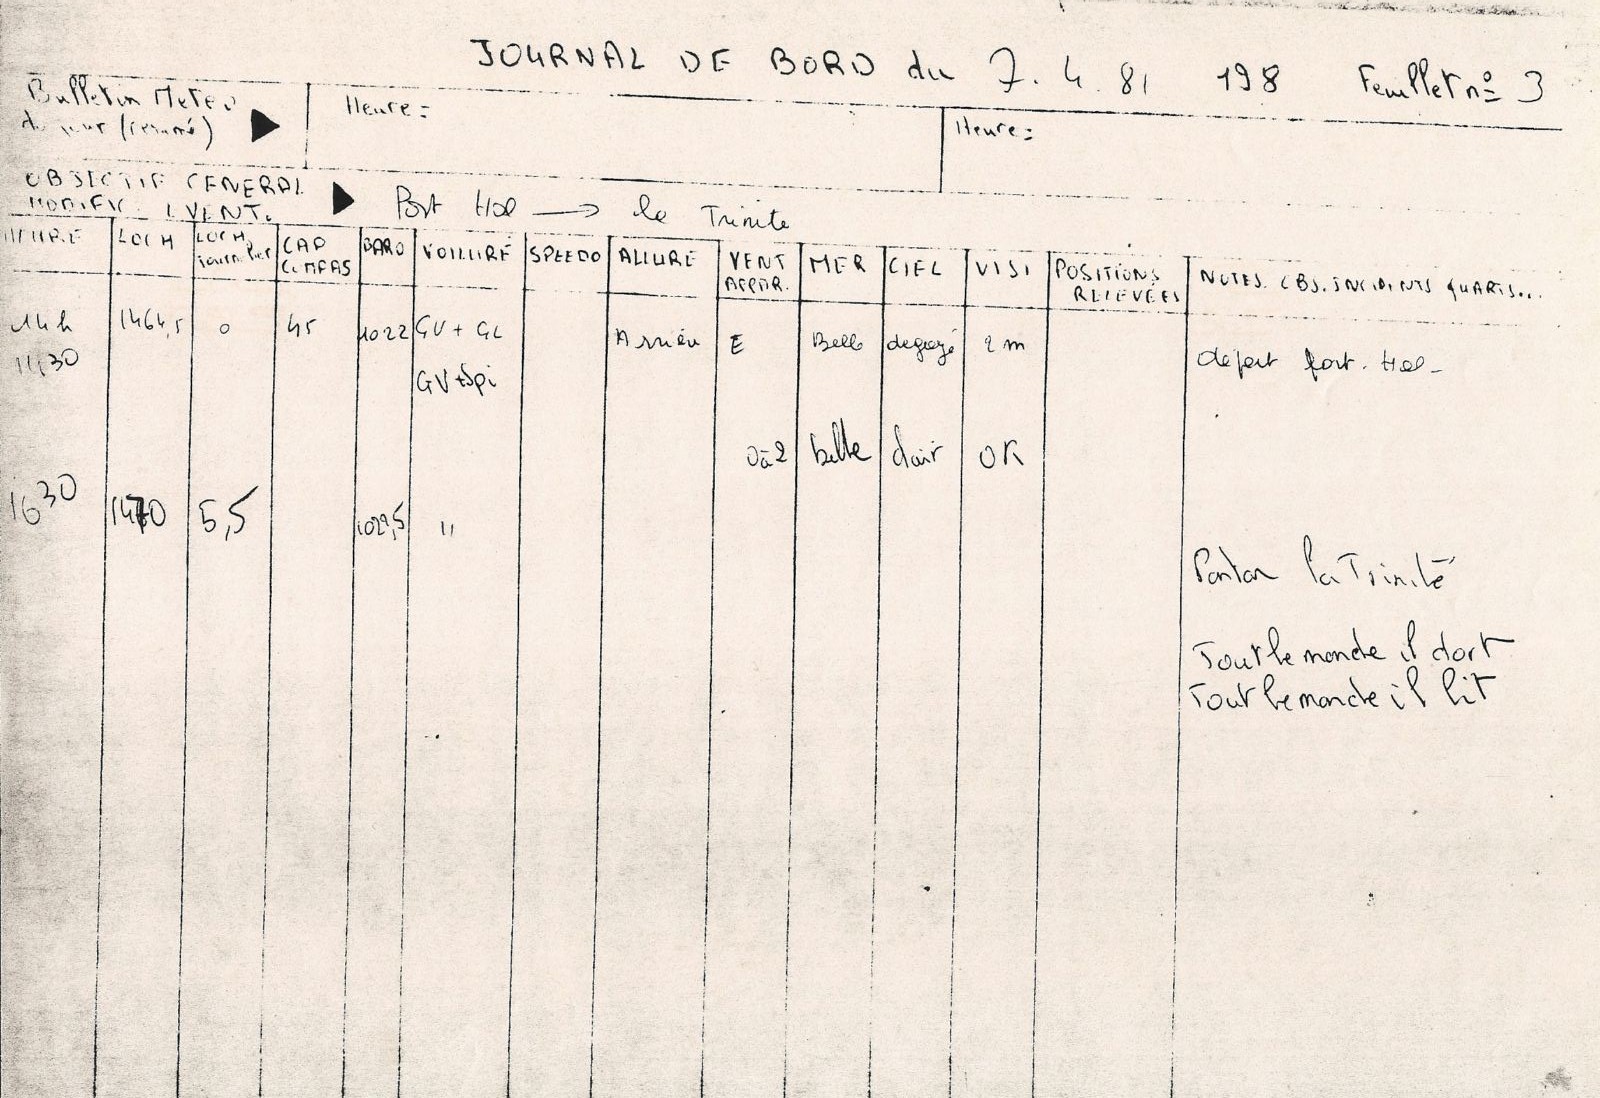 JOURNAL DE BORD du 7. 4. 81 198 Feuillet nº 3
Bulletin Meteo
du jour (résumé)
Heure:
Heure:
OBJECTIF GENERAL
MODIFIC. EVENT.
Port Hal → la Trinite
HEURE LOCH LOCH journalier CAP COMPAS BARO VOILURE SPEEDO ALLURE VENT APPAR. MER CIEL VISI POSITIONS RELEVÉES NOTES. OBS. INCIDENTS QUARTS...
14h 1464,5 0 45 1022 GV + GL Arrière E Belle degagé 2 m depart port. Hal-
14,30 GV+Spi
0à2 belle clair OK
16 30 1470 5,5 1022,5 "
Ponton la Trinité
Tout le monde il dort
Tout le monde il lit